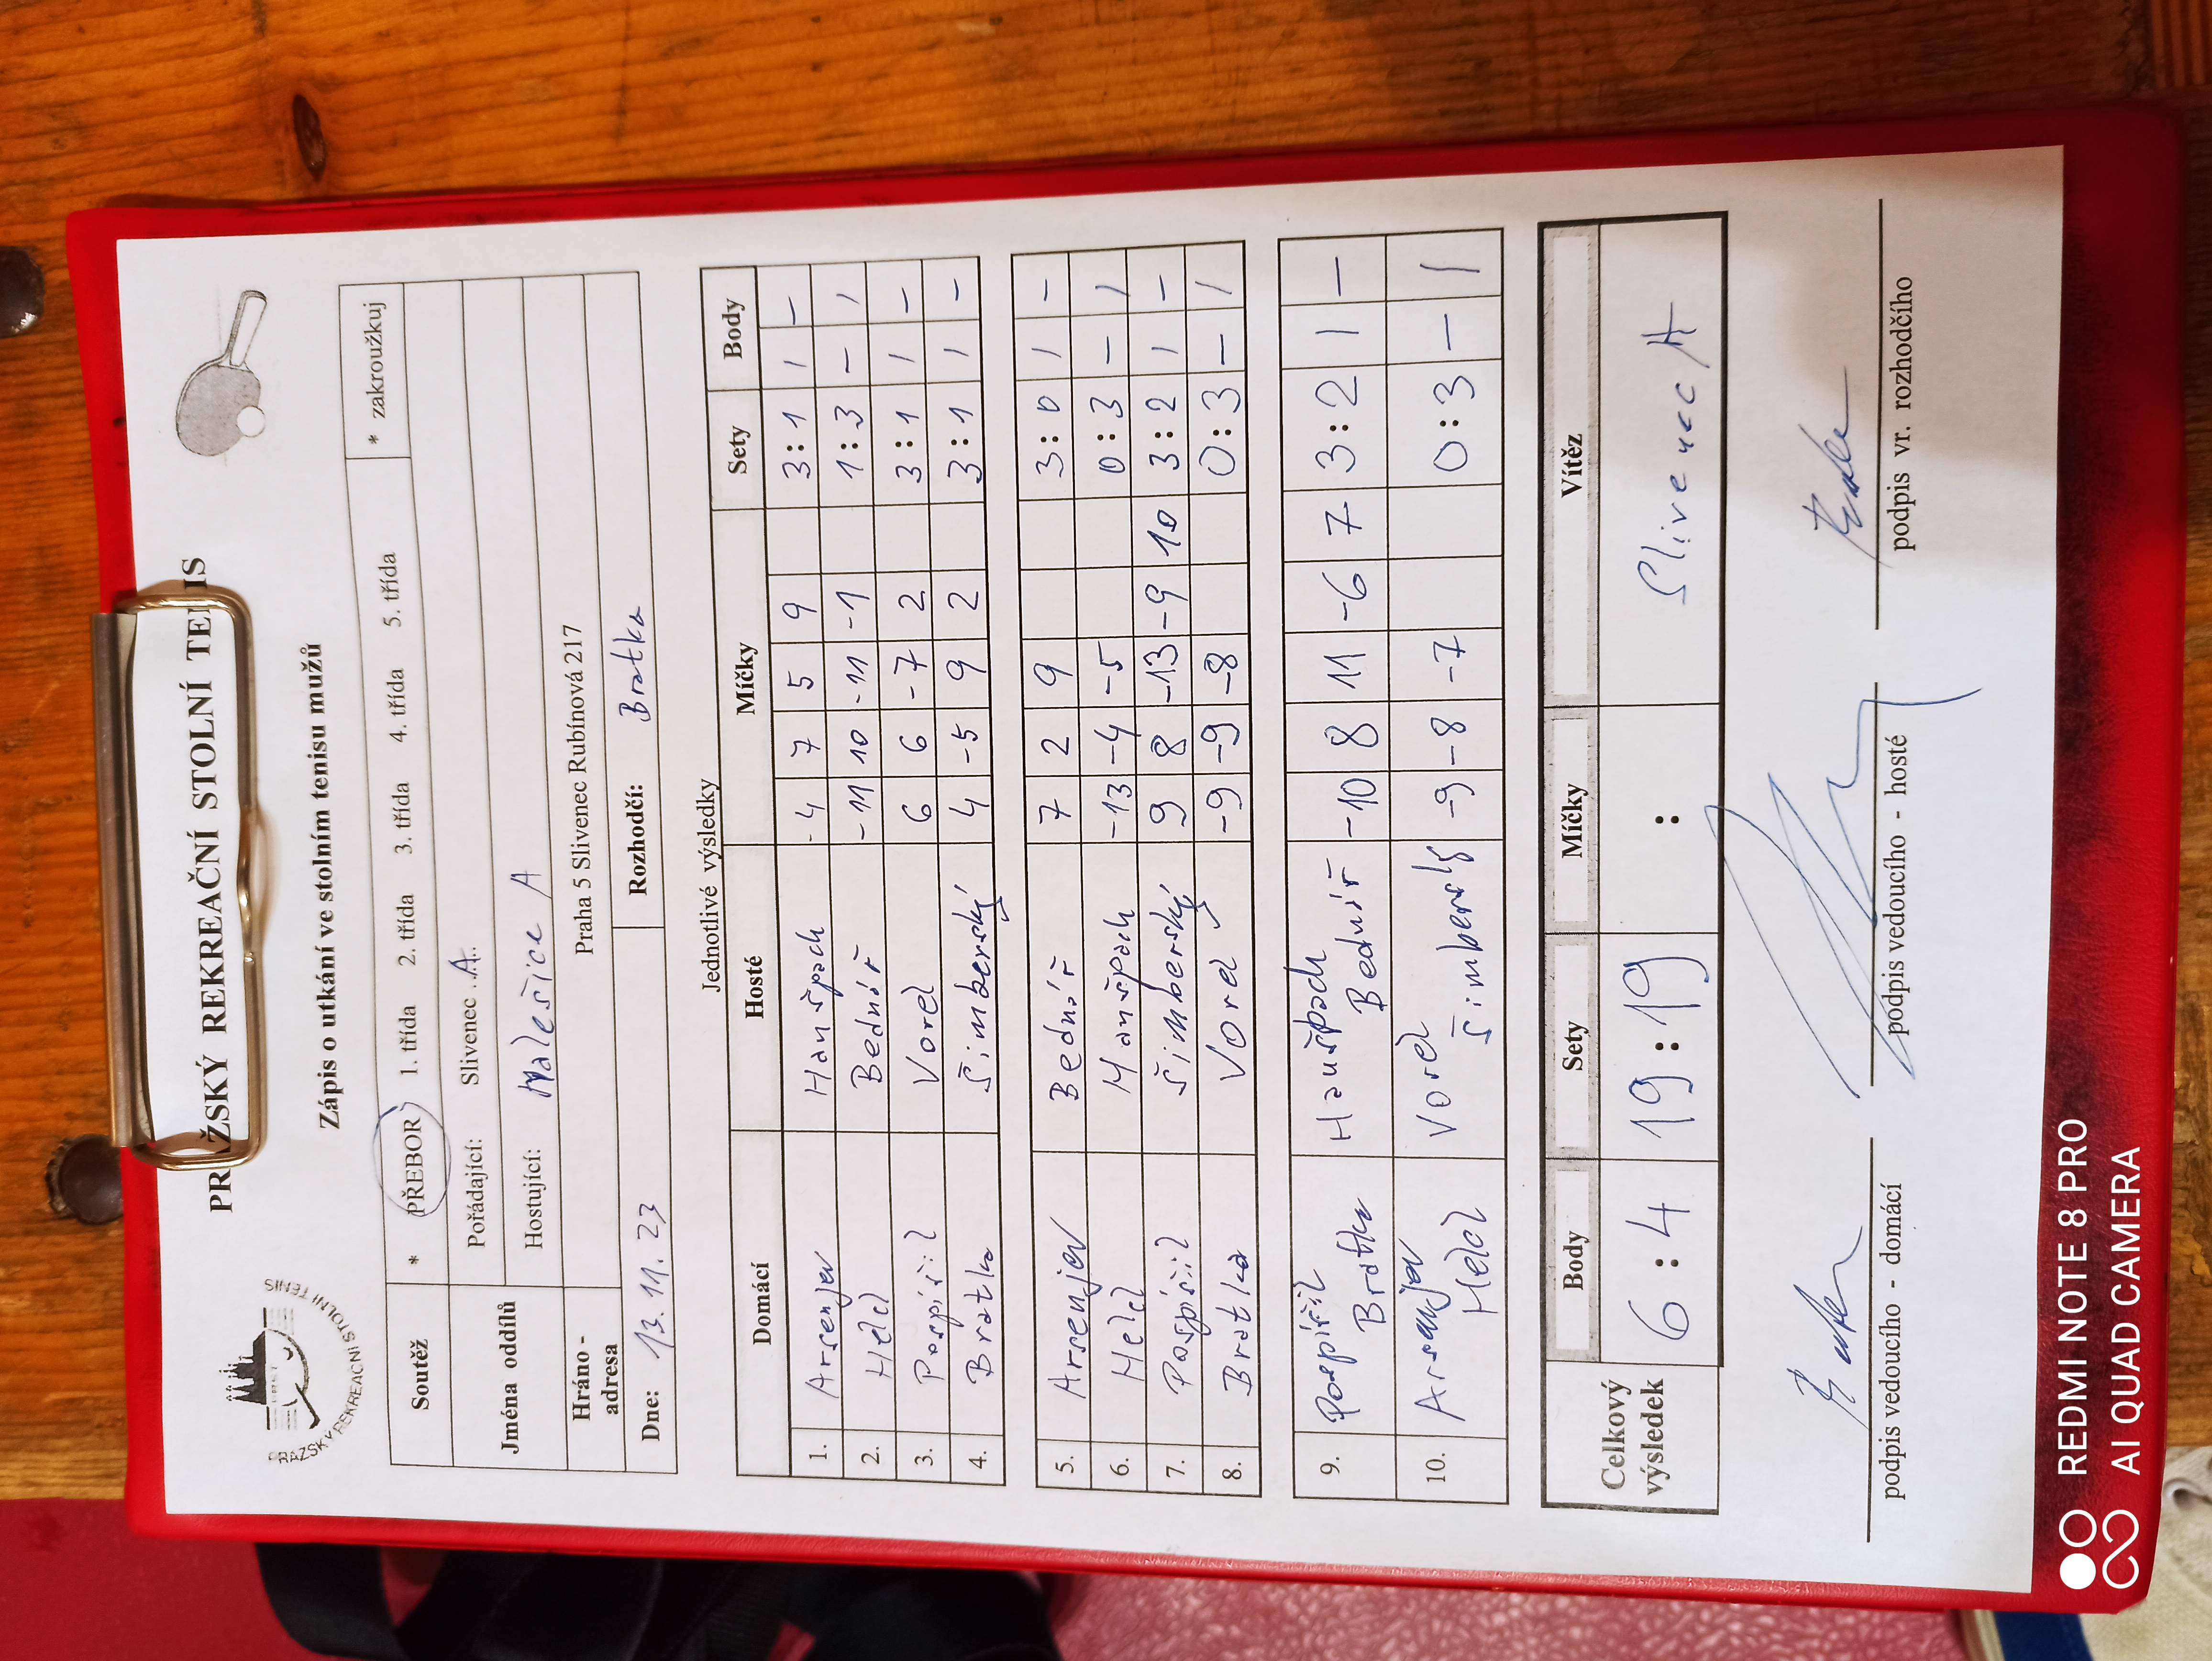 PRAŽSKÝ REKREAČNÍ STOLNÍ TE IS
PRAŽSKÝ REKREAČNÍ STOLNÍ TENIS
Zápis o utkání ve stolním tenisu mužů
Soutěž * PŘEBOR 1. třída 2. třída 3. třída 4. třída 5. třída * zakroužkuj
Jména oddílů
Pořádající: Slivenec .A.
Hostující: Malešice A
Hráno - adresa Praha 5 Slivenec Rubínová 217
Dne: 13.11.23 Rozhodčí: Bratka
Jednotlivé výsledky
Domácí Hosté Míčky Sety Body
1. Arsenjev Hanšpach -4 7 5 9 3:1 1 –
2. Held Bednář -11 10 -11 -1 1:3 – 1
3. Pospíšil Vorel 6 6 -7 2 3:1 1 –
4. Bratka Šimberský 4 -5 9 2 3:1 1 –
5. Arsenjev Bednář 7 2 9 3:0 1 –
6. Held Hanšpach -13 -4 -5 0:3 – 1
7. Pospíšil Šimberský 9 8 -13 -9 10 3:2 1 –
8. Bratka Vorel -9 -9 -8 0:3 – 1
9. Pospíšil Hanšpach -10 8 11 -6 7 3:2 1 –
Bratka Bednář
10. Arsenjev Vorel -9 -8 -7 0:3 – 1
Held Šimberský
Celkový výsledek
Body Sety Míčky Vítěz
6:4 19:19 : Slivenec A
podpis vedoucího - domácí podpis vedoucího - hosté podpis vr. rozhodčího
REDMI NOTE 8 PRO
AI QUAD CAMERA